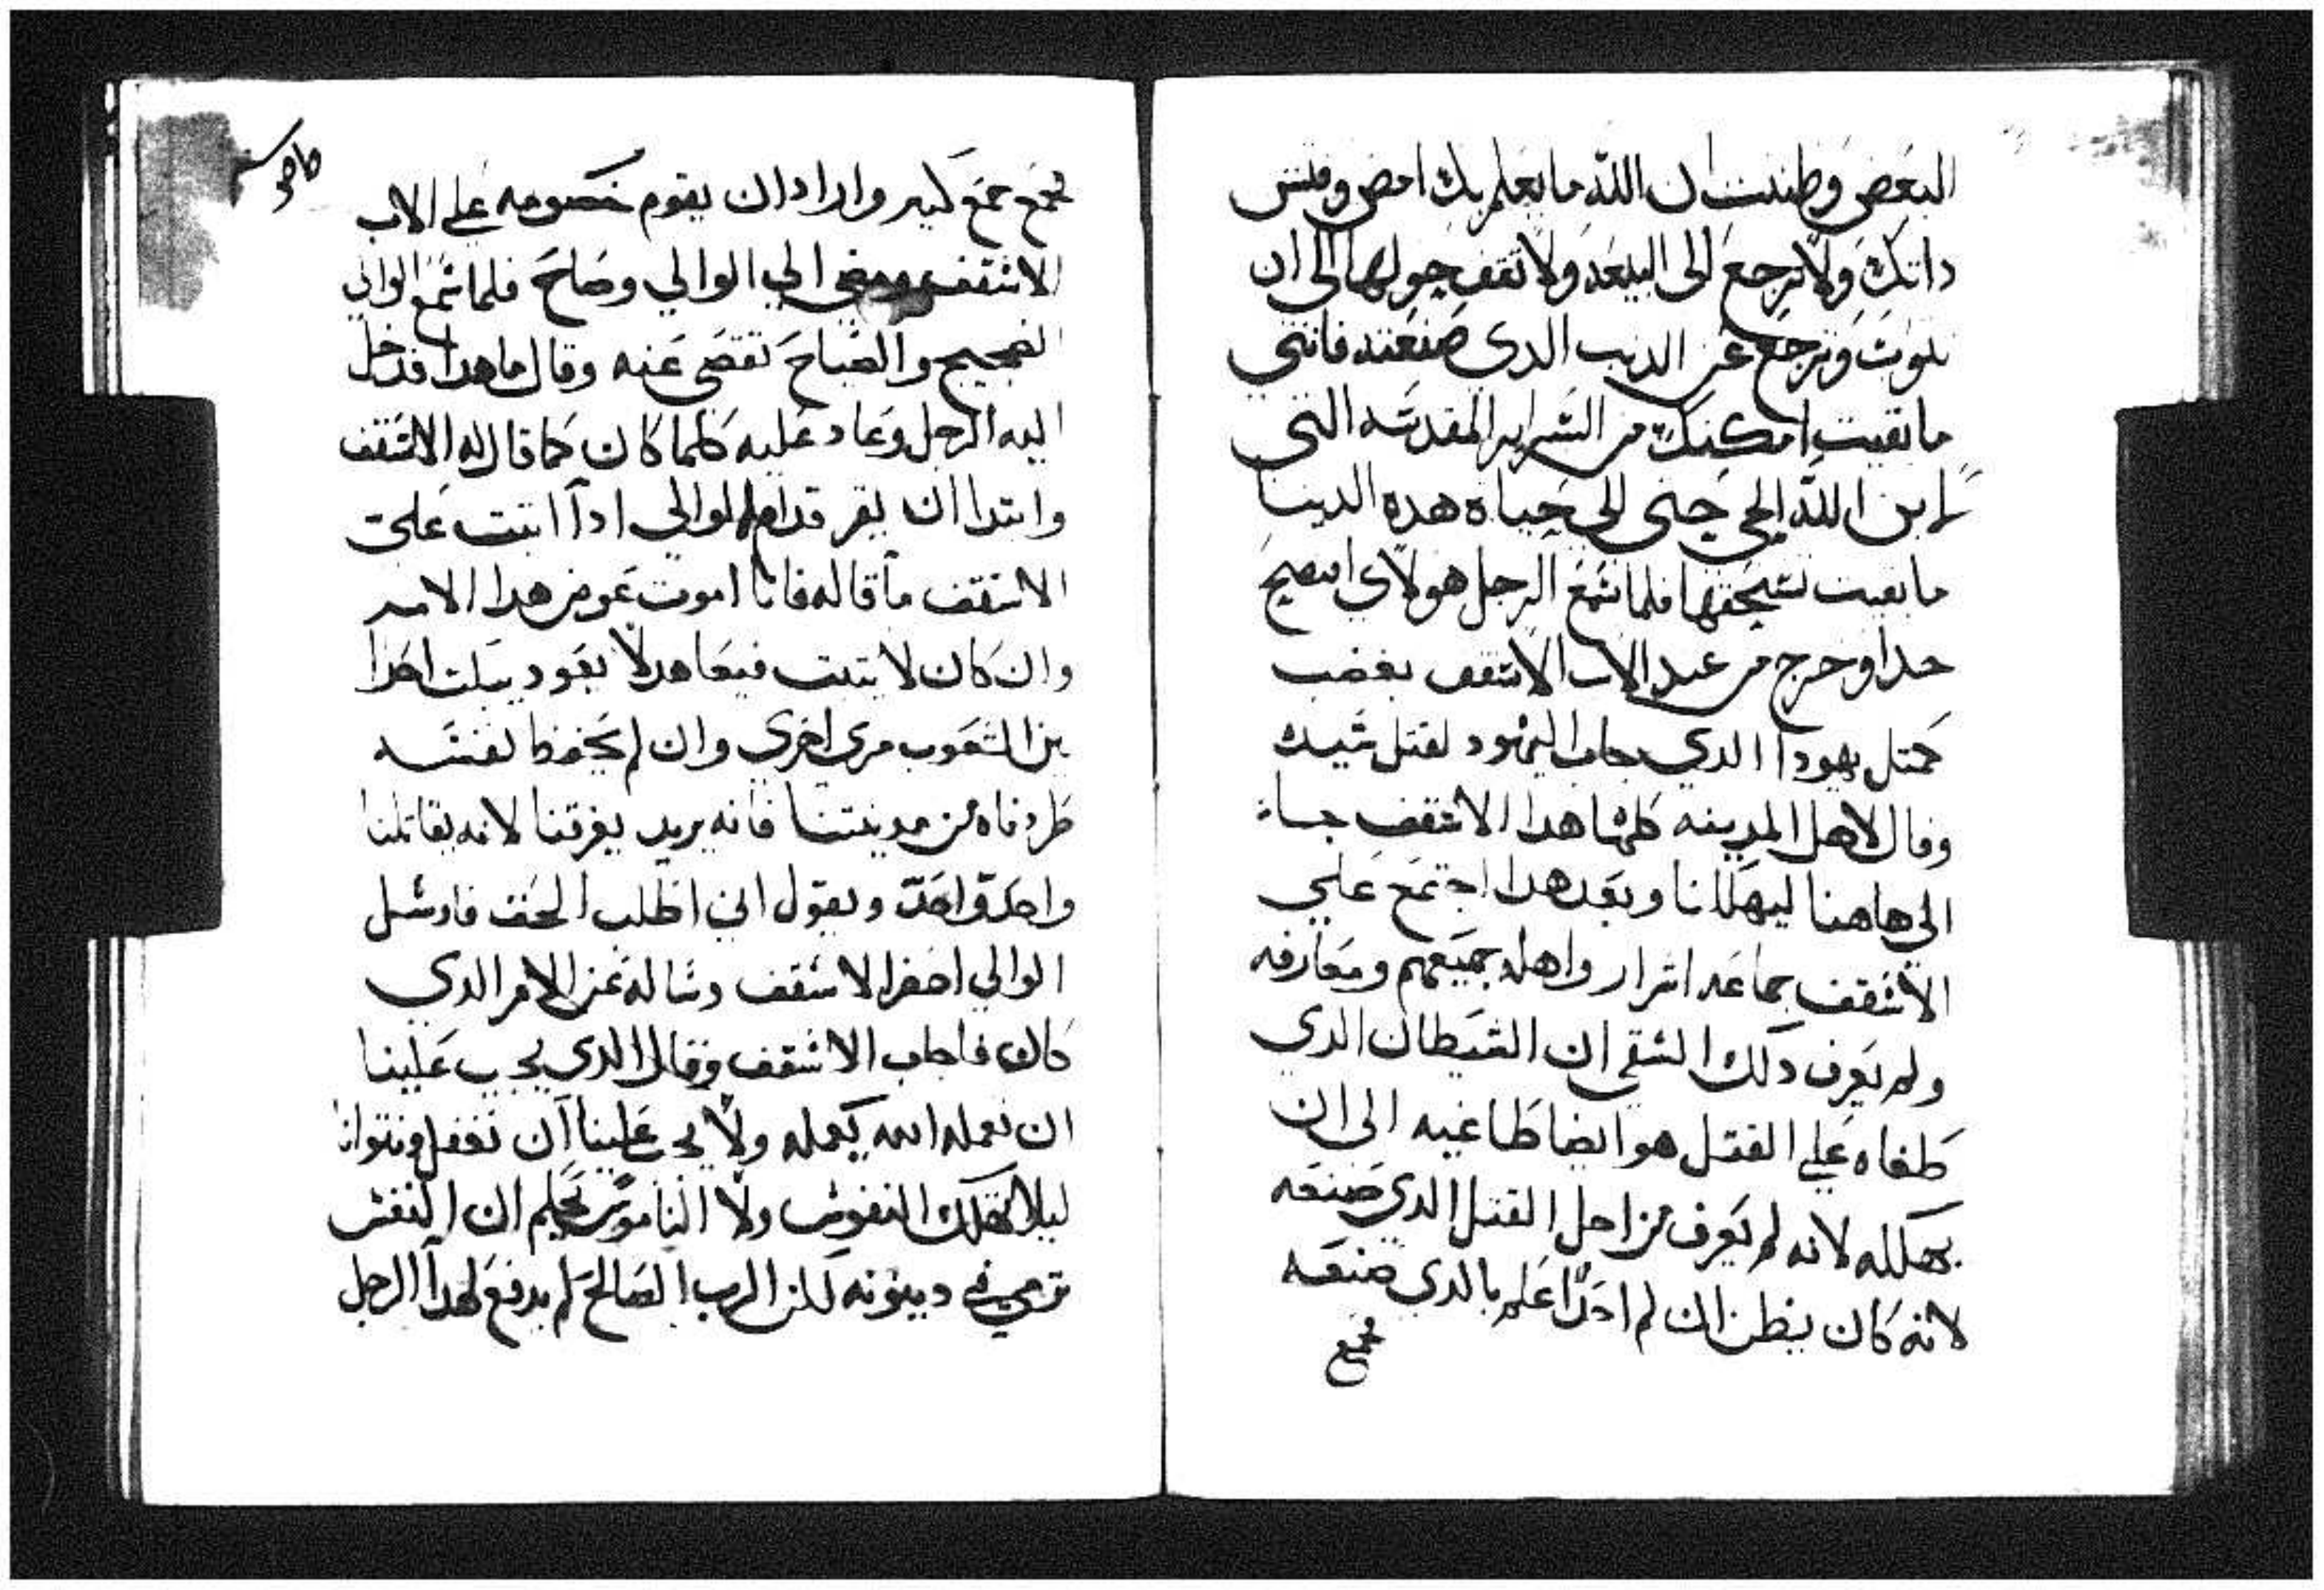 البعض وظننت ان الله ما يعلم بك امض وفتش
داتك ولا ترجع الى البيعه ولا تقف حولها الى ان
تتوب وترجع عن الدنب الدى صنعته فانني
ما بقيت امكنك من السراير المقدسه التى
لابن الله الحي حتى الى حياة هده الدنيا
ما بقيت تستحقها فلما سمع الرجل هولاى افتضح
جدا وخرج من عند الاب الاسقف بغضب
كمتل يهودا الدي جاب اليهود لقتل سيده
وقال لاهل المدينه كلها هدا الاسقف جاء
الي هاهنا ليهلكنا وبعد هدا اجتمع علي
الاسقف بجماعه اشرار واهله جميعهم ومعارفه
ولم يعرف دلك الشقي ان الشيطان الدى
طغاه علي القتل هو ايضا طاغيه الى ان
يهلكه لانه لم يعرف من اجل القتل الدي صنعه
لانه كان يظن ان لم احدا علم بالدى صنعه
فجمع
فجمع جمع كبير واراد ان يقوم خصومه علي الاب
الاسقف ومضى الي الوالي وصاح فلما سمع الوالي
الضجيج والصياح تقصى عنه وقال ما هدا فدخل
اليه الرجل وعاد عليه كلما كان كما قال له الاسقف
وابتدا ان يقر قدام الوالي ادا اتبت على
الاسقف ما قاله فانا اموت عوض هدا الامر
وان كان لا يتبت فيعاهد لا يعود يبكت احدا
بين الشعوب مرى اخرى وان لم يحفظ لفنسه
طردناه من مدينتنا فانه يريد يفرقنا لانه يقاتلنا
واحد واحد ويقول اني اطلب الحق فارسل
الوالي احضر الاسقف وساله عن الامر الدي
كان فاجاب الاسقف وقال الدى يجب علينا
ان نعمله الله يكمله ولا يجب علينا ان نغفل ونتوانا
ليلا تهلك النفوس ولا الناموس يحكم ان النفس
ترمي في دينونه لكن الرب الصالح لم يدفع لهدا الرجل